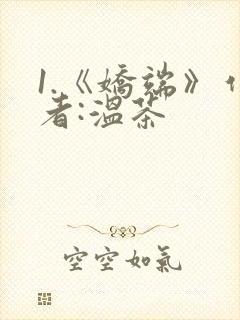 1.《嬌端》
者:溫茶
空空如氣